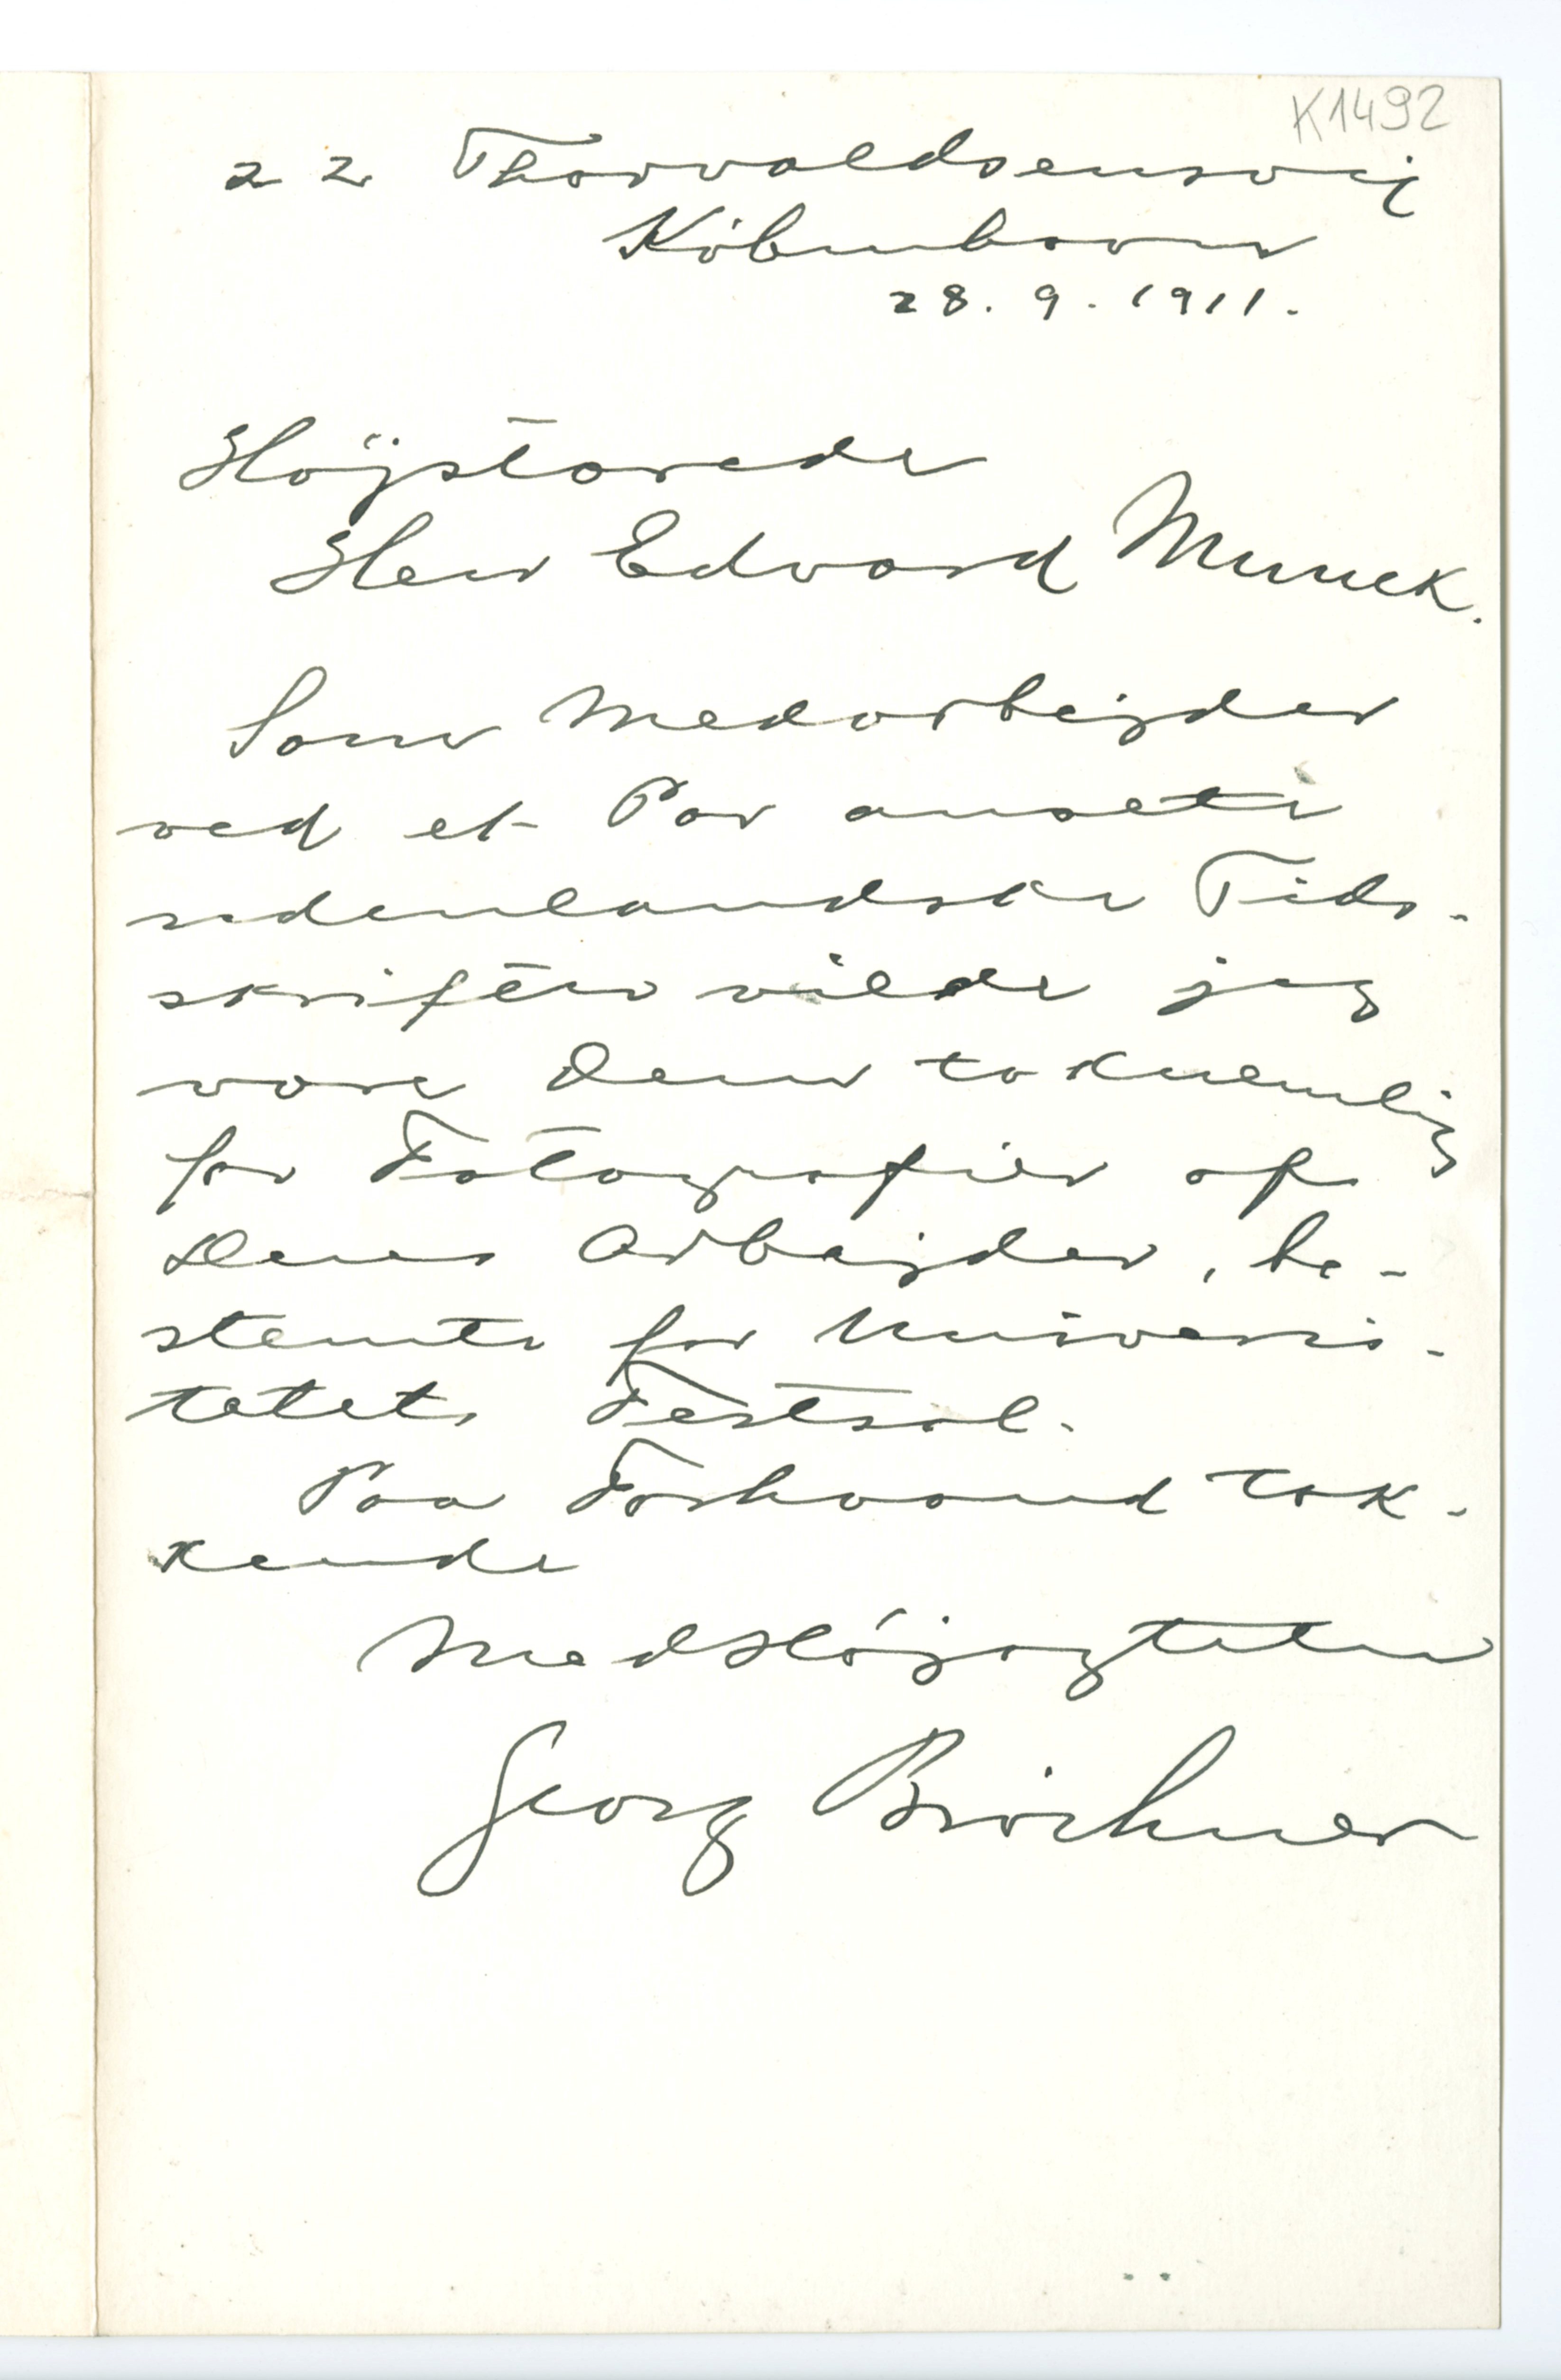 K1492
22 Thorvaldsensvej
København
28. 9. 1911.
Højstærede
Herr Edvard Munck.
Som Medarbejder
ved et Par ansete
udenlandske Tids-
skrifter vilde jeg
være Dem taknemlig
for Fotografier af
Deres Arbejder, be-
stemte for Universi-
tetets Festsal.
Paa Forhaand tak-
kende
Med Højagtelse
Georg Bröchner